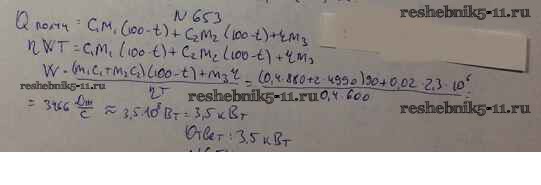 N 653
Q полн = C₁M₁(100-t)+C₂M₂(100-t)+4M₃
reshebnik5-11.ru
ηWT=C₁M₁(100-t)+C₂M₂(100-t)+4M₃
W=(M₁C₁+M₂C₂)(100-t)+M₃4 / ηT = (0,4·880+2·4990)90+0,02·2,3·10⁶ / 0,4·600 =
reshebnik5-11.ru
= 3466 Дж/с ≈ 3,5·10³Вт=3,5кВт
reshebnik5-11.ru
Ответ: 3,5 кВт